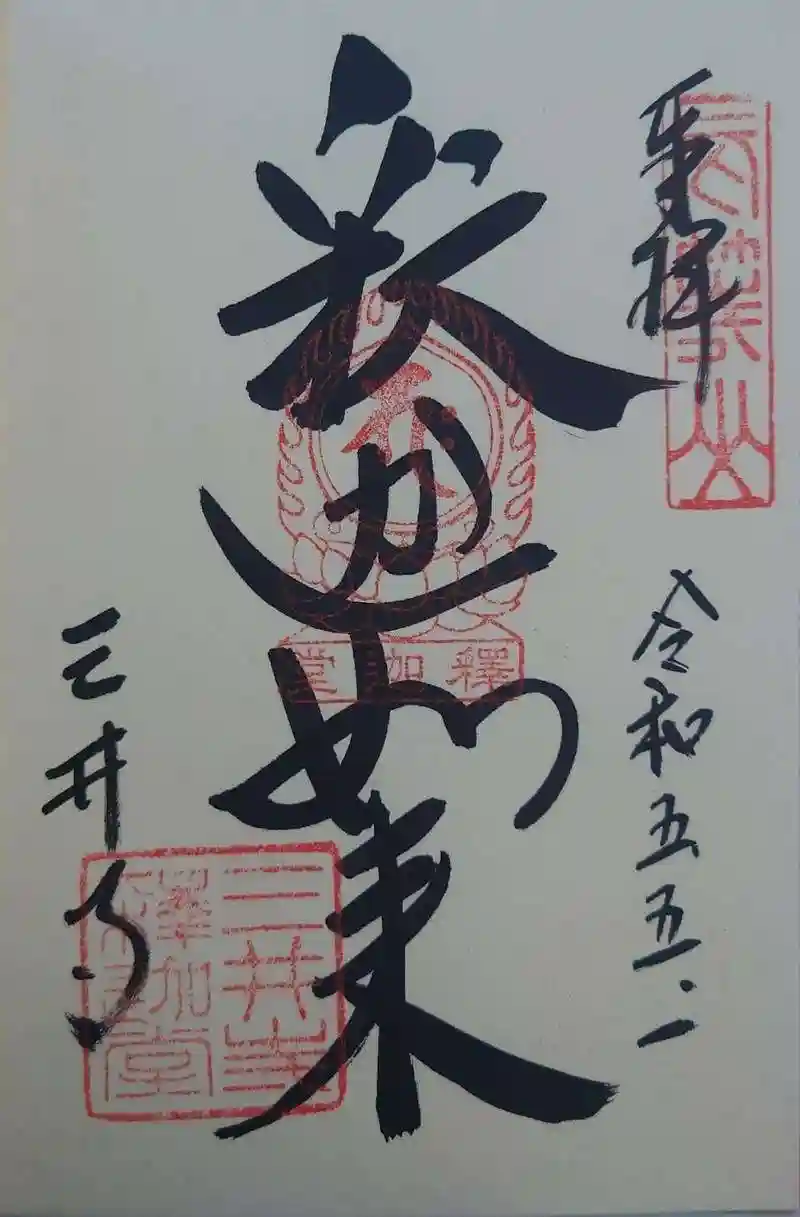 奉拝
長等山
令和五.五.一
釈迦如来
釋迦堂
三井寺
三井寺
釋迦堂